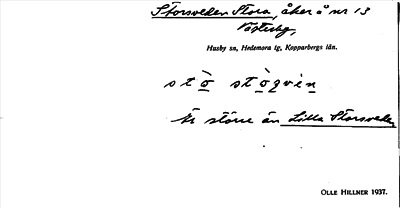 Storsveden Stora, åker å nr 13
Västerby,
Husby sn, Hedemora tg, Kopparbergs län.
Är större än Lilla Storsveden
OLLE HILLNER 1937.